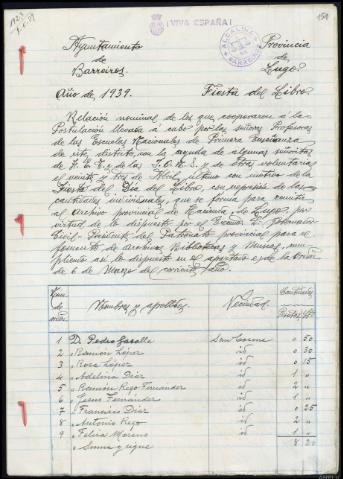 ¡VIVA ESPAÑA!
151
Ayuntamiento Provincia
de de
Barreiros. Lugo.
Año de 1939. Fiesta del Libro
Relación nominal de los que cooperaron a la
Postulación llevada a cabo por los señores Profesores
de las Escuelas Nacionales de Primera Enseñanza
de este distrito, con la ayuda de algunas señoritas
de F.E.T. y de las J.O.N.S. y de otras voluntarias
el veinte y tres de Abril, último con motivo de la
Fiesta del Día del Libro, con expresión de las
cantidades individuales, que se forma para remitir
al Archivo provincial de Hacienda, de Lugo, por
virtud de lo dispuesto por el Excmo. Sr. Gobernador
Civil-Presidente del Patronato provincial para el
fomento de archivos, Bibliotecas y Museos, cum-
pliendo así lo dispuesto en el apartado de la Orden
de 6 de Marzo del corriente año.
Núm.
de Nombres y apellidos Vecindad.
orden Pesetas
1 D. Pedro San Cosme 0 50
2 " Ramon López id 0 30
3 " Rosa López id 0 15
4 " Adelina Diaz id 1 "
5 " Ramón Rego Fernandez id 2 "
6 " Jesus Fernández id 1 "
7 " Francisco Diaz id 0 25
8 " Antonio Rego id 2 "
9 " Felisa Moreno id 1 "
Suma y sigue 8 20